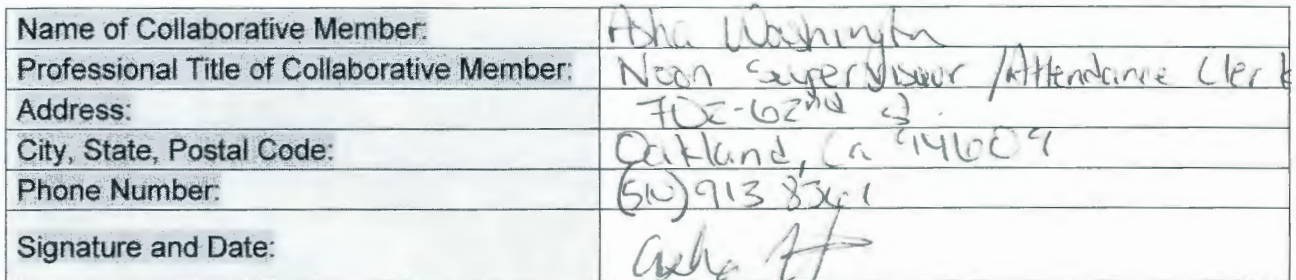 Name of Collaborative Member: Asha Washington
Professional Title of Collaborative Member: Noon Supervisor /Attendance Clerk
Address: 702-62nd
City, State, Postal Code: Oakland, Ca 94609
Phone Number: (510) 913
Signature and Date: